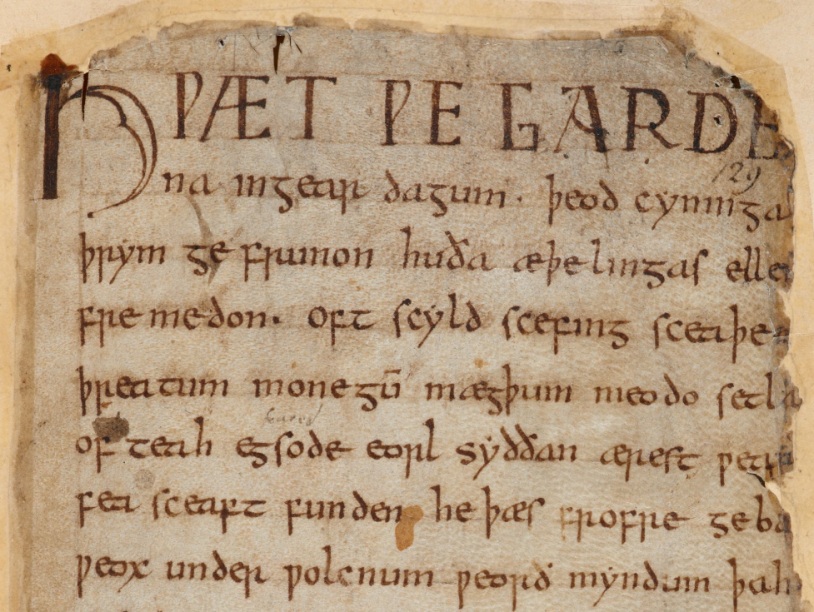 HǷÆT ǷE GARDE
129
na ingear dagum. þeod cyninga
þrym ge frunon huða æþelingas elle
fremedon. oft scyld scefing sceaþe
þreatum monegū mægþum meodo setla
of teah egsode eorl syððan ærest ƿear
fea sceaft funden he þæs frofre geba
ƿeox under ƿolcnum ƿeorð myndum þah